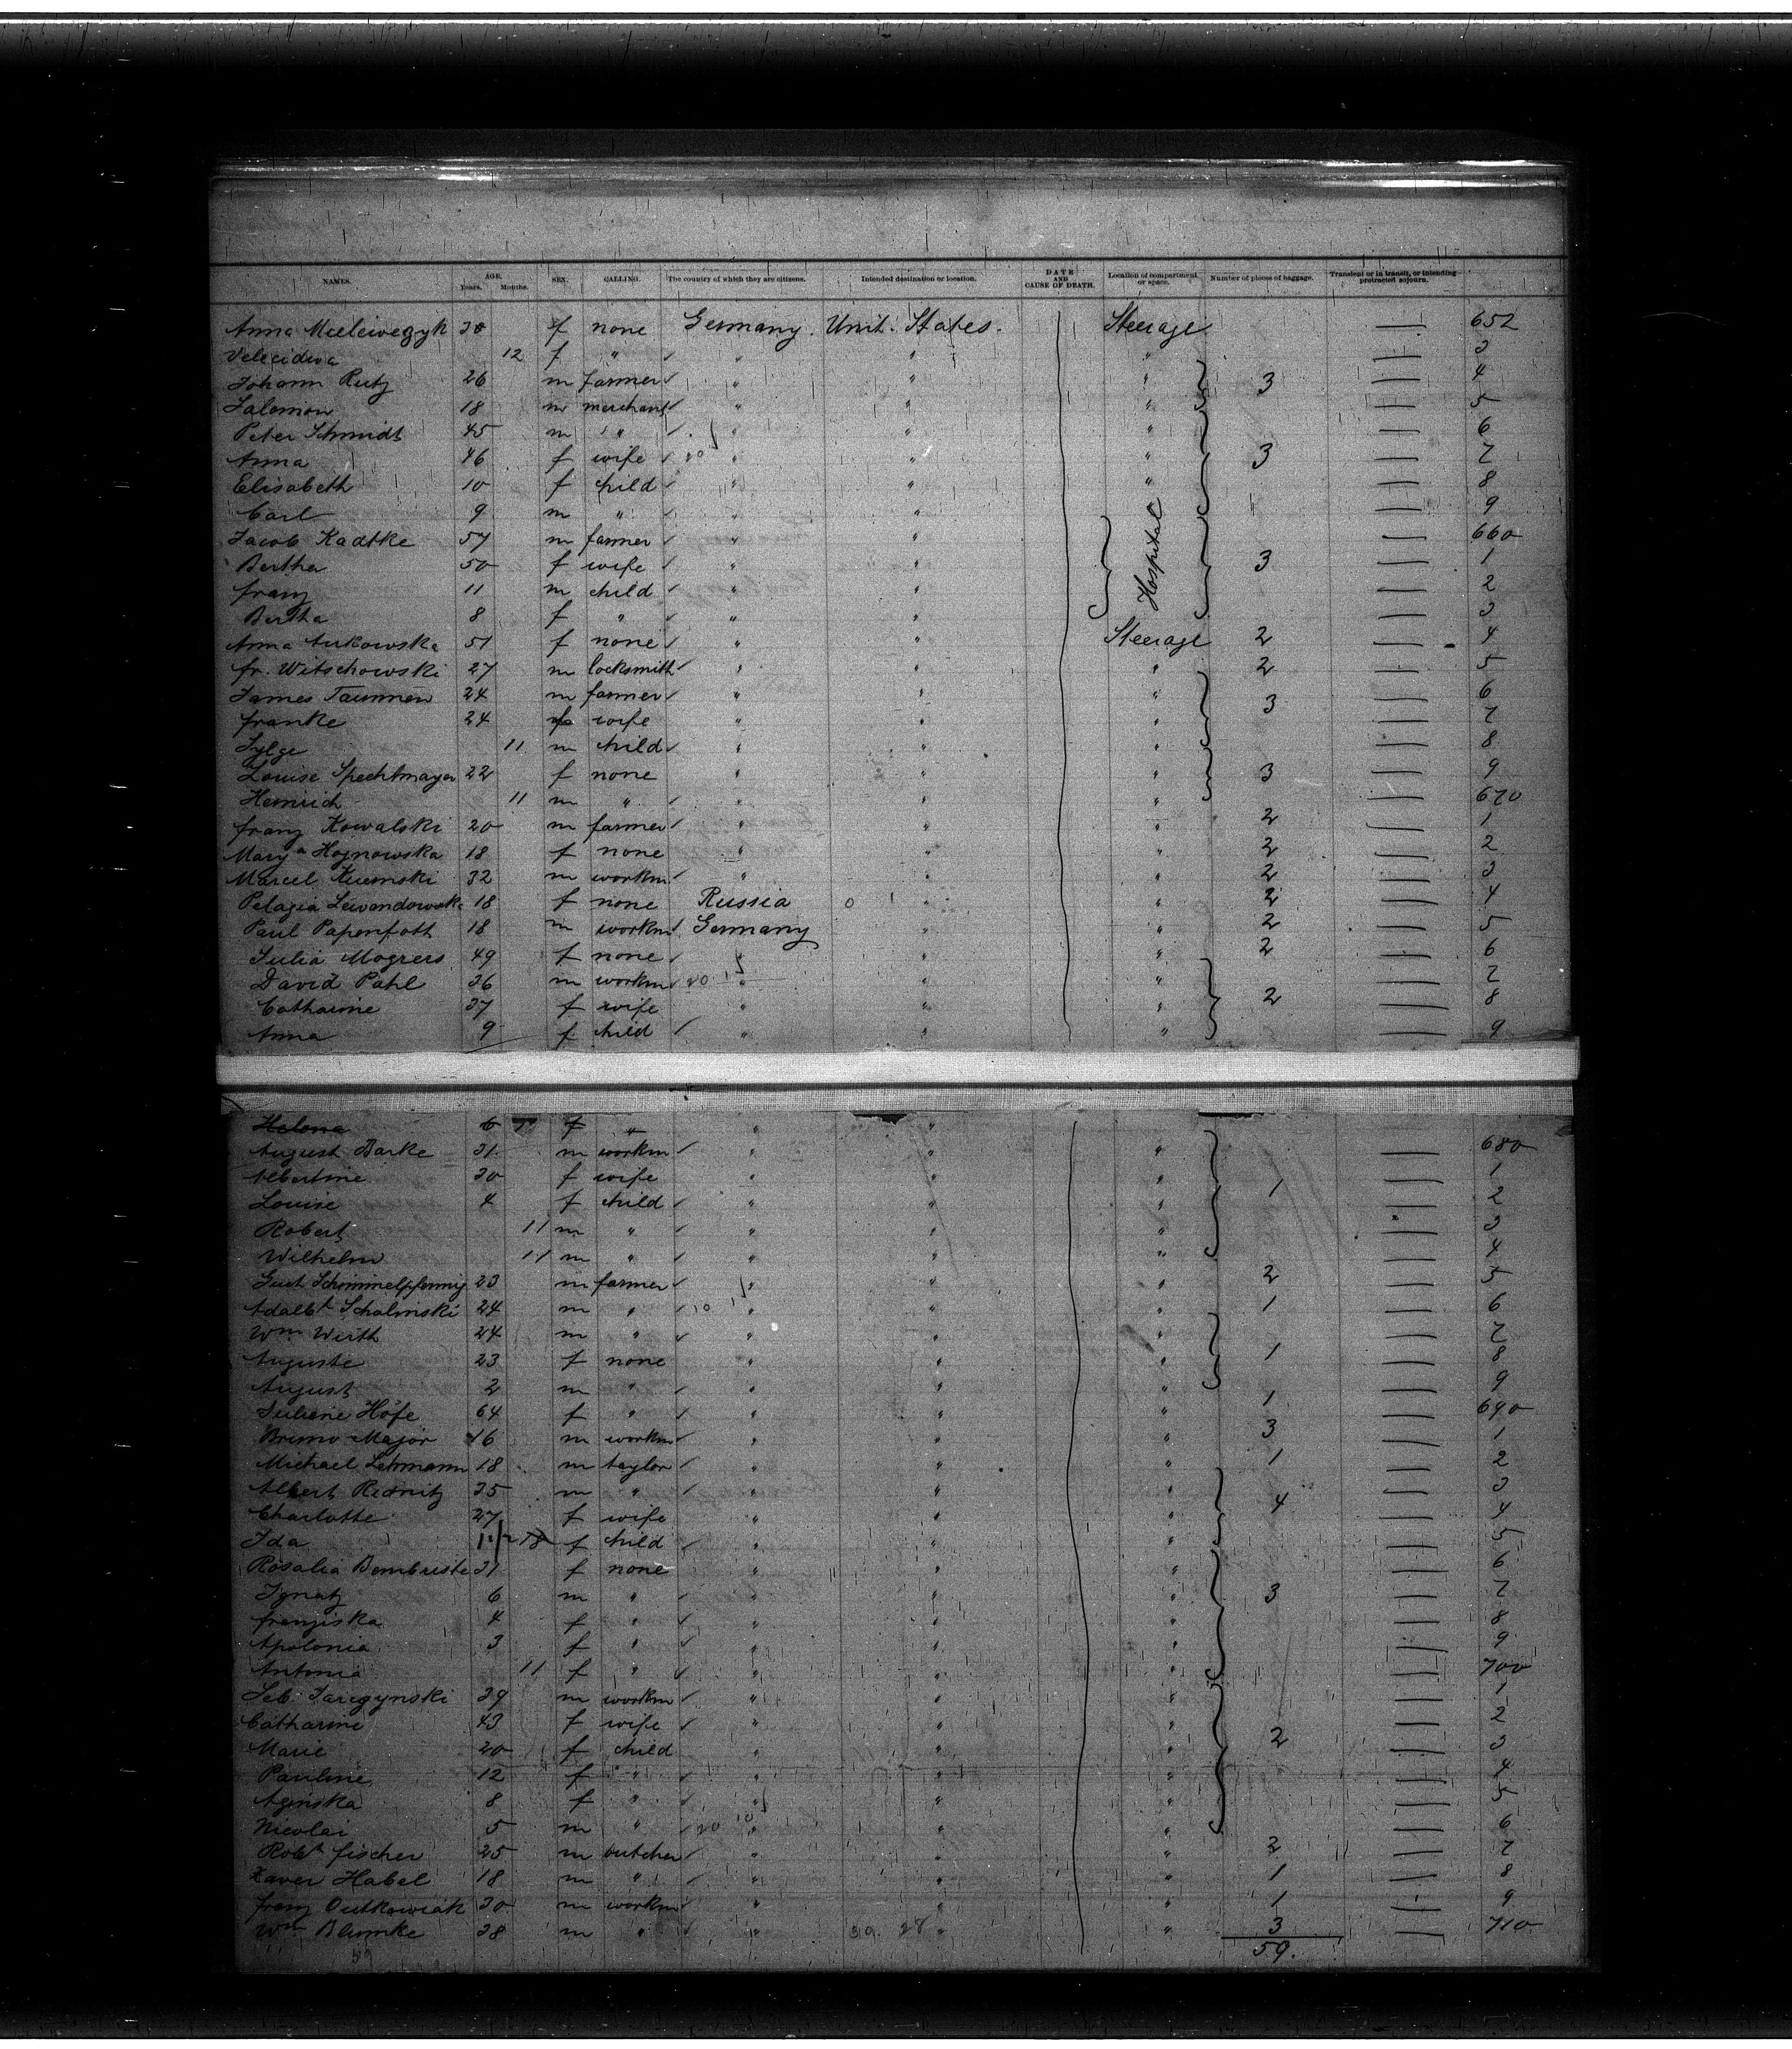 NAMES. AGE. Years. Months. SEX. CALLING. The country of which they are citizens. Intended destination or location. DATE AND CAUSE OF DEATH. Location of compartment or space. Number of pieces of baggage. Transient or in transit, or intending protracted sojourn.
Anna 30 f none Germany. Unit. States. Steerage — 652
12 f " " " " — 3
Johann Rutz 26 m farmer " " " 3 — 4
Salomon 18 m merchant " " " — 5
Peter Schmidt 45 m " " " " — 6
Anna 46 f wife " " " 3 — 7
Elisabeth 10 f child " " " — 8
Carl 9 m " " " — 9
Jacob Radtke 57 m farmer " " Hospital — 660
Bertha 50 f wife " " 3 — 1
Franz 11 m child " " — 2
Bertha 8 f " " " — 3
Anna 51 f none " " Steerage 2 — 4
Fr. Witschowski 27 m locksmith " " " 2 — 5
James 24 m farmer " " " 3 — 6
Franke 24 f wife " " " — 7
11 m child " " " — 8
Louise Spechtmayer 22 f none " " " 3 — 9
Heinrich 11 m " " " " — 670
Franz Kowalski 20 m farmer " " " 2 — 1
Marya Hojnowska 18 f none " " " 2 — 2
Marcel 32 m workm " " " 2 — 3
Pelagia Lewandowska 18 f none Russia " " 2 — 4
Paul Papenfoth 18 m workm Germany " " 2 — 5
Julia Mogrers 49 f none " " " 2 — 6
David Pahl 36 m workm " " " — 7
Catharine 37 f wife " " " 2 — 8
Anna 9 f child " " " — 9
Helena 6 f " " "
August Barke 31 m workm " " " — 680
Albertine 30 f wife " " " 1 — 1
Louise 4 f child " " " — 2
Robert 11 m " " " " — 3
Wilhelm 11 m " " " " — 4
Gust Schimmelpfennig 23 m farmer " " " 2 — 5
Adalbt Schalinski 24 m " " " " 1 — 6
Wm Wirth 24 m " " " " — 7
Auguste 23 f none " " " 1 — 8
August 2 m " " " " — 9
Juliane Höfe 64 f " " " " 1 — 690
Bruno Major 16 m workm " " " 3 — 1
Michael Lehmann 18 m taylor " " " 1 — 2
Albert 35 m " " " " 4 — 3
Charlotte 27 f wife " " " — 4
Ida f child " " " — 5
Rosalia 31 f none " " " — 6
Ignatz 6 m " " " " 3 — 7
Franziska 4 f " " " " — 8
Apolonia 3 f " " " " — 9
Antonia 11 f " " " " — 700
39 m workm " " " — 1
Catharine 43 f wife " " " — 2
Marie 20 f child " " " 2 — 3
Pauline 12 f " " " " — 4
8 f " " " " — 5
Nicolai 5 m " " " " — 6
Robt Fischer 25 m butcher " " " 2 — 7
Xaver Habel 18 m " " " " 1 — 8
Franz 30 m workm " " " 1 — 9
Wm Blumke 28 m " " " " 3 — 710
59.